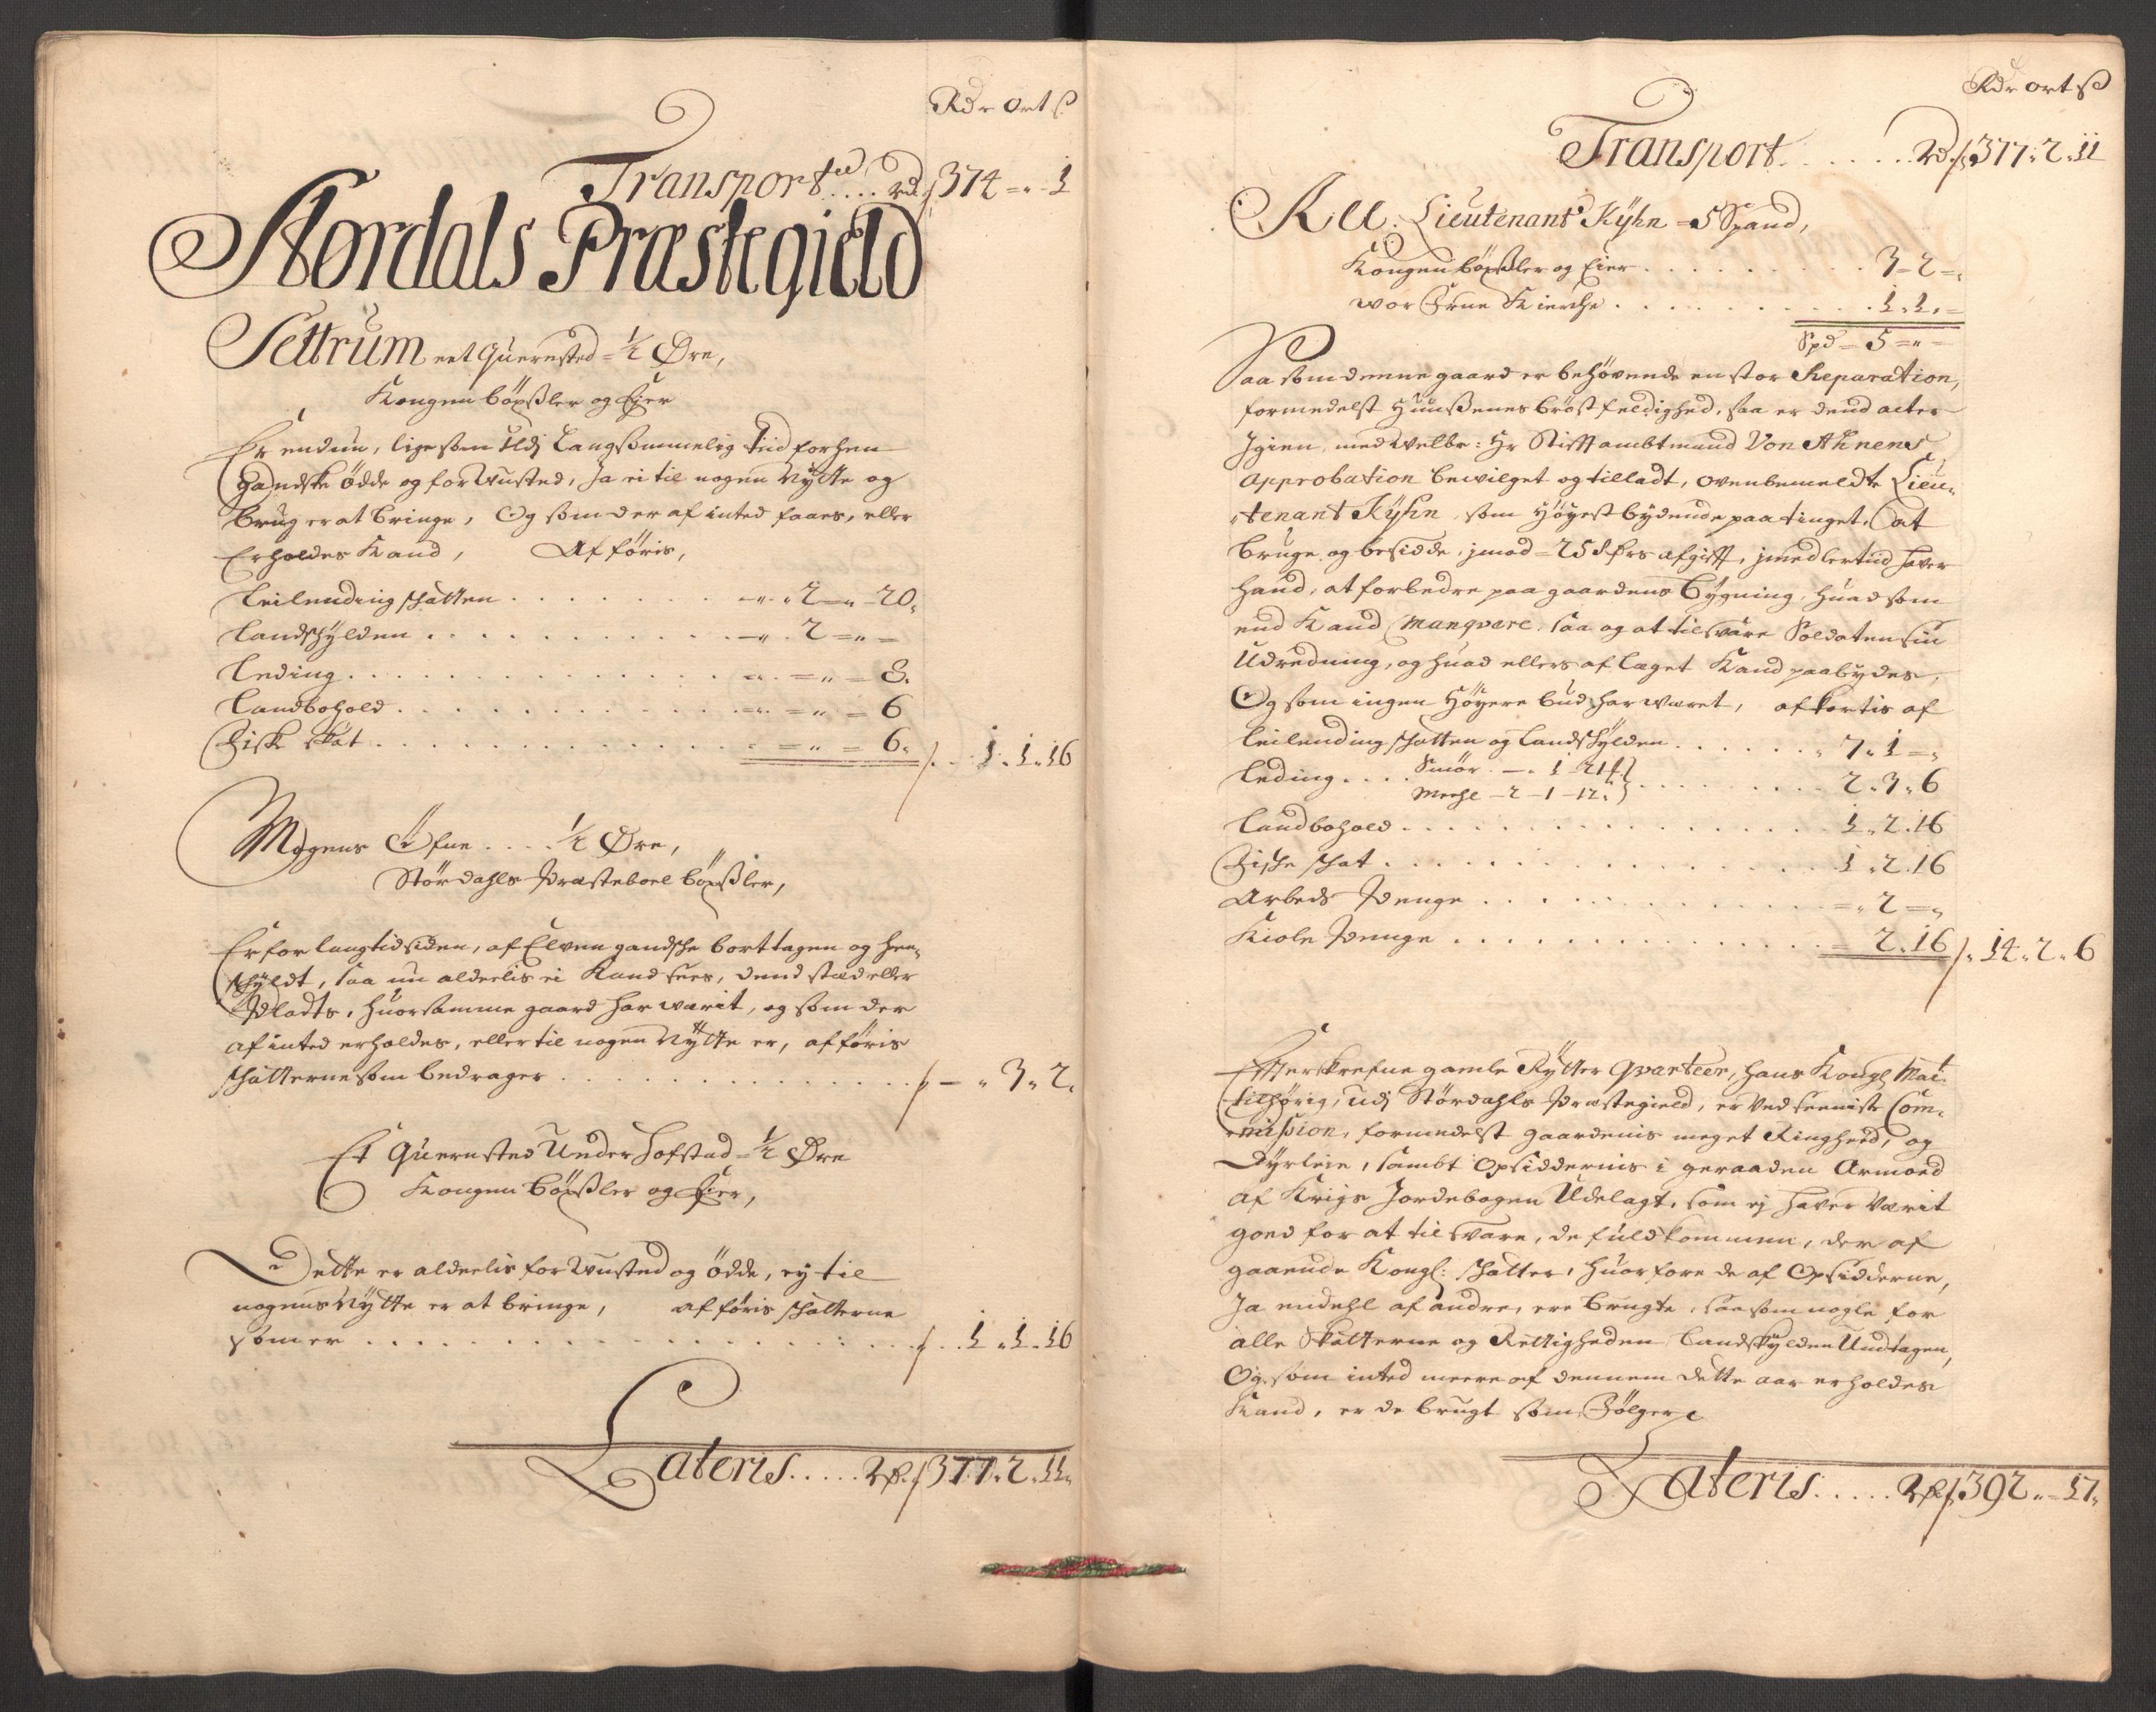 Rdr ort ß
Transport.... Rd 374 = " - 1
Størdals Præstegield
Settrum eet Quernsted = ½ Øre,
Kongen böxßler og Ejer
Er endnu, lige som Udj langsommelig tiid forhen
gandske ödde og forwusted, Ja ei til nogen Nÿtte og
brug er at bringe, Og som der af inted faaes, eller
Erholdes Kand, Afføris,
Leilending schatten . . . - " . 2 - " - 20,
Landschÿlden . . . - " . 2 = " -
Leding . . . = " = 8.
Landbohold . . . = " = 6
Fiske skat . . . = " = 6. 1. 1. 16
Mogens Öfne . . . . ½ Øre,
Størdahls Præsteboel böxßler,
Er for langtid siden, af Elven gandsche borttagen og hen-
schÿldt, saa nu alderlis ei Kand sees, dend stæd eller
Pladts, huor samme gaard har wærit, og som der
af inted erholdes, eller til nogen Nÿtte er, afføris
schatterne som bedrager . . . - " 3 " 2.
Et Quernsted Under Hofstad = ½ Øre
Kongen böxßler og Ejer,
Dette er alderlis forwusted og ödde, ej til
nogens Nÿtte er at bringe, afføris schatterne
som er . . . 1. 1. 16
Lateris..... Rdr. 377. 2. 11.
Rdr ort ß
Transport...... Rd 377. 2. 11
Lieutenant Kÿhn = 5 Spand,
Kongen böxßler og Eier . . . 3 - 2 -
wor Frue Kierche . . . 1. 1. -
Spd = 5 = " =
Saa som denne gaard er behøvende en stor Reparation,
formedelst Huusßenes bröstfeldighed, saa er dend atter
Igien, med Velbr: Hr Stiftambtmand Von Ahnens
Approbation bewilget og tilladt, ovenbemeldte Lieu-
tenant Kÿhn, som Höÿestbydende paa tinget, at
bruge og besidde, imod = 25 afgifft, imedlertiid haver
hand, at forbedre paa gaardens bÿgning, huad som
end Kand Manqvere, saa og at tilsvare Soldaten sin
Udredning, og huad ellers af læget Kand paabydes,
Og som ingen Höÿere bud har wæret, afkortis af
Leilending schatten og Landschÿlden . . . 7. 1 = "
Leding . . . Smör - . 1 - 21
Meehl - 2 - 1 - 12. . . . 2. 3. 6
Landbohold . . . 1. 2. 16
Fische schat . . . 1. 2. 16
Arbeds Penge . . . = " 2 = "
Kiole Penge . . . = 2. 16 14. 2. 6
Effterskrefne gamle Rÿtter Qvarteer, hans Kongl Mait
tilhørig, udj Størdahls Præstegield, er ved seeniste Com-
mission, formedelst gaardenis meget Ringhed, og
Dyrleie, sambt Opsiddernis i geraaden Armoed
af Krigs Jordebogen Udelagt, som ej haver Værit
goed for at tilsvare, de fuldkommen, der af
gaaende Kongl: schatter, huorfore de af Opsidderne,
Ja endehl af andre, ere brugte, saa som nogle for
alle Skatterne og Rettigheden Landskÿlden Undtagen,
Og som inted meere af dennem dette aar erholdes
Kand, er de brugt som Fölger
Lateris..... Rdr 392. - 17.